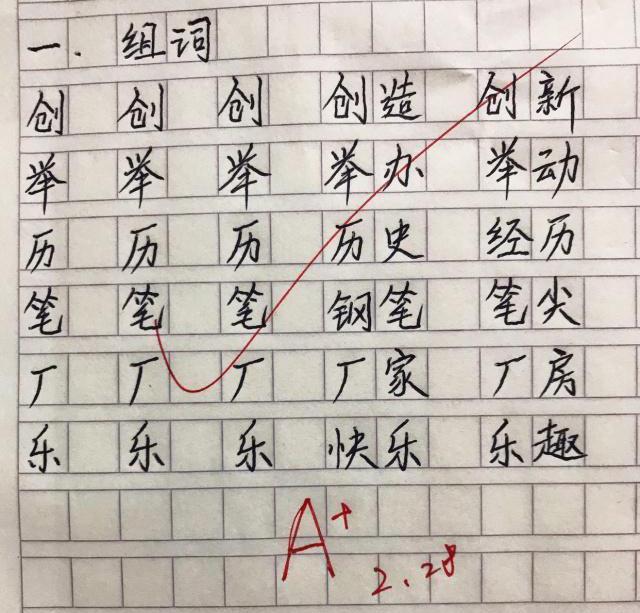 一. 组词
创 创 创 创造 创新
举 举 举 举办 举动
历 历 历 历史 经历
笔 笔 笔 钢笔 笔尖
厂 厂 厂 厂家 厂房
乐 乐 乐 快乐 乐趣
A+
2.28